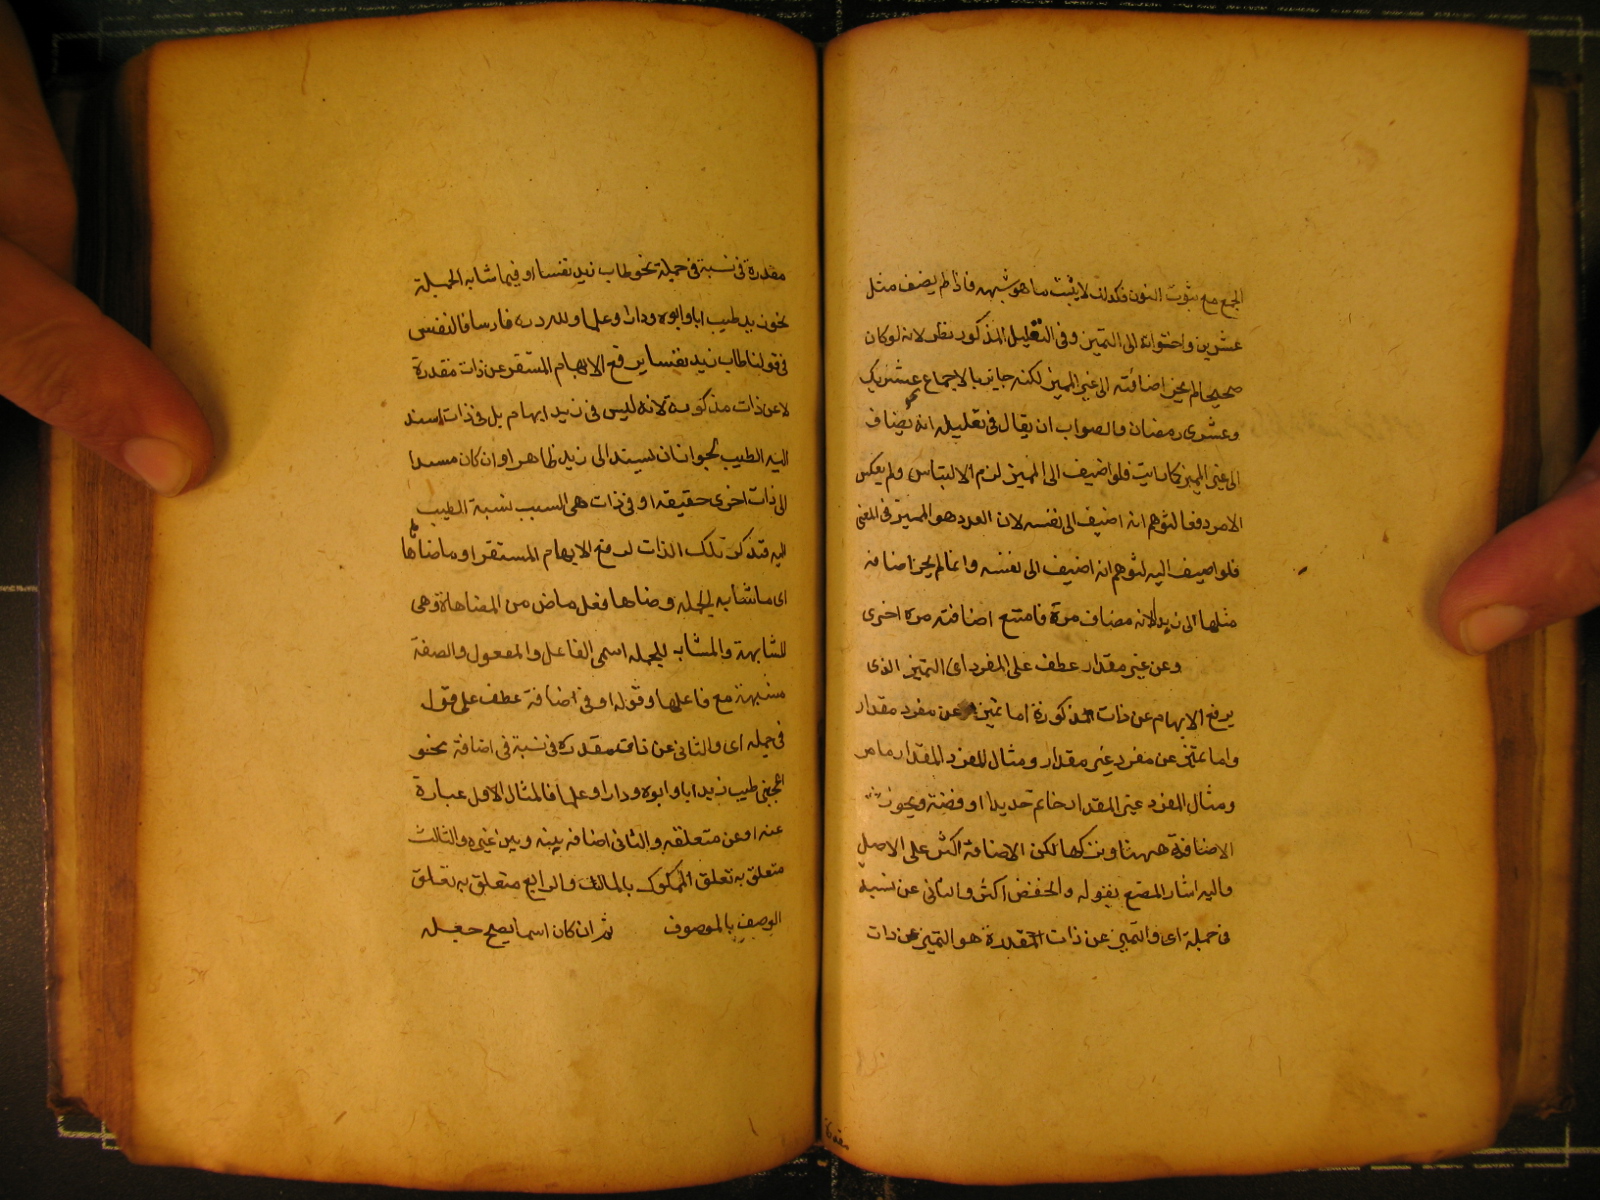 الجمع مع ثبوت النون فكذلك لا يثبت ما هو شبهه فاذا لم يضف مثل
عشرين واخواته الى التميز وفى التعليل المذكور نظر لانه لو كان
صحيحا لم يجز اضافته الى غير المميز لكنه جايز بالاجماع نحو عشريك
وعشرى رمضان والصواب ان يقال فى تعليله انه يضاف
الى غير المميز فلو اضيف الى المميز لزم الالتباس ولم يعكس
الامر دفعا لتوهم انه اضيف الى نفسه لان العدد هو المميز فى المعنى
فلو اضيف اليه لتوهم انه اضيف الى نفسه وانما لم يجز اضافة
مثلها الى زيد لانه مضاف مرة فامتنع اضافته مرة اخرى
وعن غير مقدار عطف على المفرد اى التميز الذى
يرفع الابهام عن ذات المذكورة اما تميز عن مفرد مقدار
واما تميز عن مفرد غير مقدار ومثال المفرد المقدار ما مر
ومثال المفرد غير المقدار خاتم حديدا او فضة ويجوز
الاضافة ههنا وتركها لكن الاضافة اكثر على الاصل
واليه اشار المصنف بقوله والخفض اكثر والثانى عن نسبة
فى جملة اى والتميز عن ذات المقدرة هو التميز عن ذات
مقدرة فى نسبة فى جملة نحو طاب زيد نفسا او فيما شابه الجملة
نحو زيد طيب ابا وابوة ودارا وعلما ولله دره فارسا فالنفس
فى قولنا طاب زيد نفسا يرفع الابهام المستقر عن ذات مقدرة
لا عن ذات مذكورة لانه ليس فى زيد ابهام بل فى ذات اسند
اليه الطيب لجواز ان يسند الى زيد ظاهرا وان كان مسندا
الى ذات اخرى حقيقة او فى ذات هى السبب نسبة الطيب
اليه فتذكر تلك الذات لرفع الابهام المستقر او ما ضاهاها
اى ما شابه الجملة وضاها فعل ماض من المضاهاة وهى
المشابهة والمشابه للجملة اسمى الفاعل والمفعول والصفة
مشبهة مع فاعلها وقوله او فى اضافة عطف على قوله
فى جملة اى والثانى عن ذات مقدرة فى نسبة فى اضافة نحو
اعجبنى طيب زيد ابا وابوة ودارا وعلما فالمثال الاول عبارة
عنه او عن متعلقه والثانى اضافة بينه وبين غيره والثالث
متعلق به تعلق المملوك بالمالك والرابع متعلق به تعلق
الوصف بالموصوف ثم ان كان اسما يصح جعله